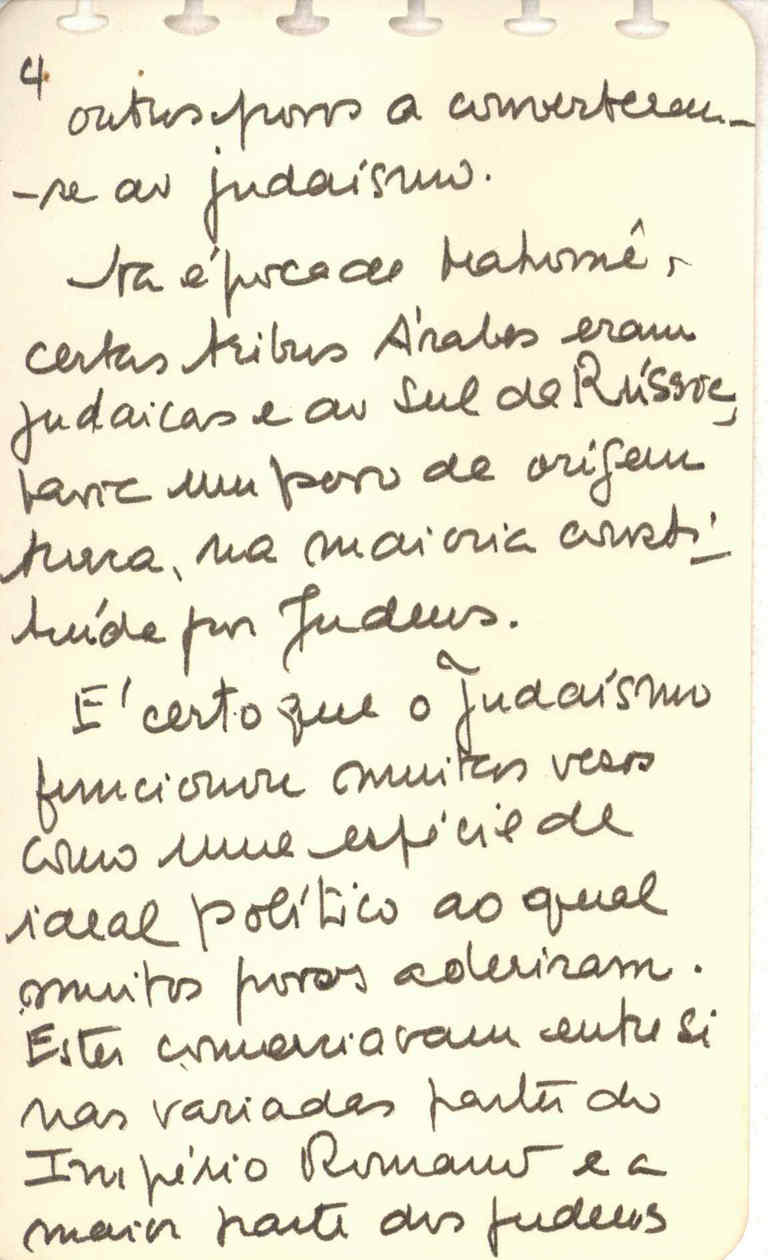 4
outros povos a converterem-
-se ao judaísmo.
Na época de Mahomê,
certas tribus Árabes eram
judaicas e ao Sul da Rússia,
havia um povo de origem
turca, na maioria consti-
tuída por Judeus.
É certo que o Judaísmo
funcionou muitas vezes
como uma espécie de
ideal político ao qual
muitos povos aderiram.
Estes comerciavam entre si
nas variadas partes do
Império Romano e a
maior parte dos judeus